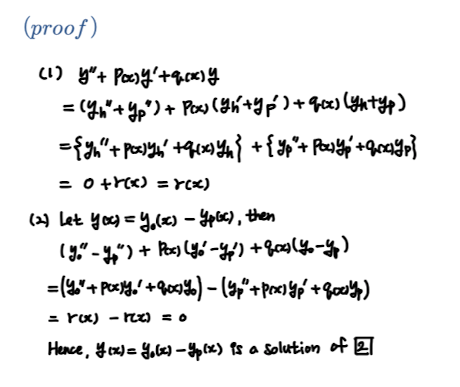 (proof)
(1) y″ + p(x)y′ + q(x)y
= (yₕ″ + yₚ″) + p(x)(yₕ′ + yₚ′) + q(x)(yₕ + yₚ)
= {yₕ″ + p(x)yₕ′ + q(x)yₕ} + {yₚ″ + p(x)yₚ′ + q(x)yₚ}
= 0 + r(x) = r(x)
(2) Let y(x) = y₀(x) − yₚ(x), then
(y₀″ − yₚ″) + p(x)(y₀′ − yₚ′) + q(x)(y₀ − yₚ)
= (y₀″ + p(x)y₀′ + q(x)y₀) − (yₚ″ + p(x)yₚ′ + q(x)yₚ)
= r(x) − r(x) = 0
Hence, y(x) = y₀(x) − yₚ(x) is a solution of 2